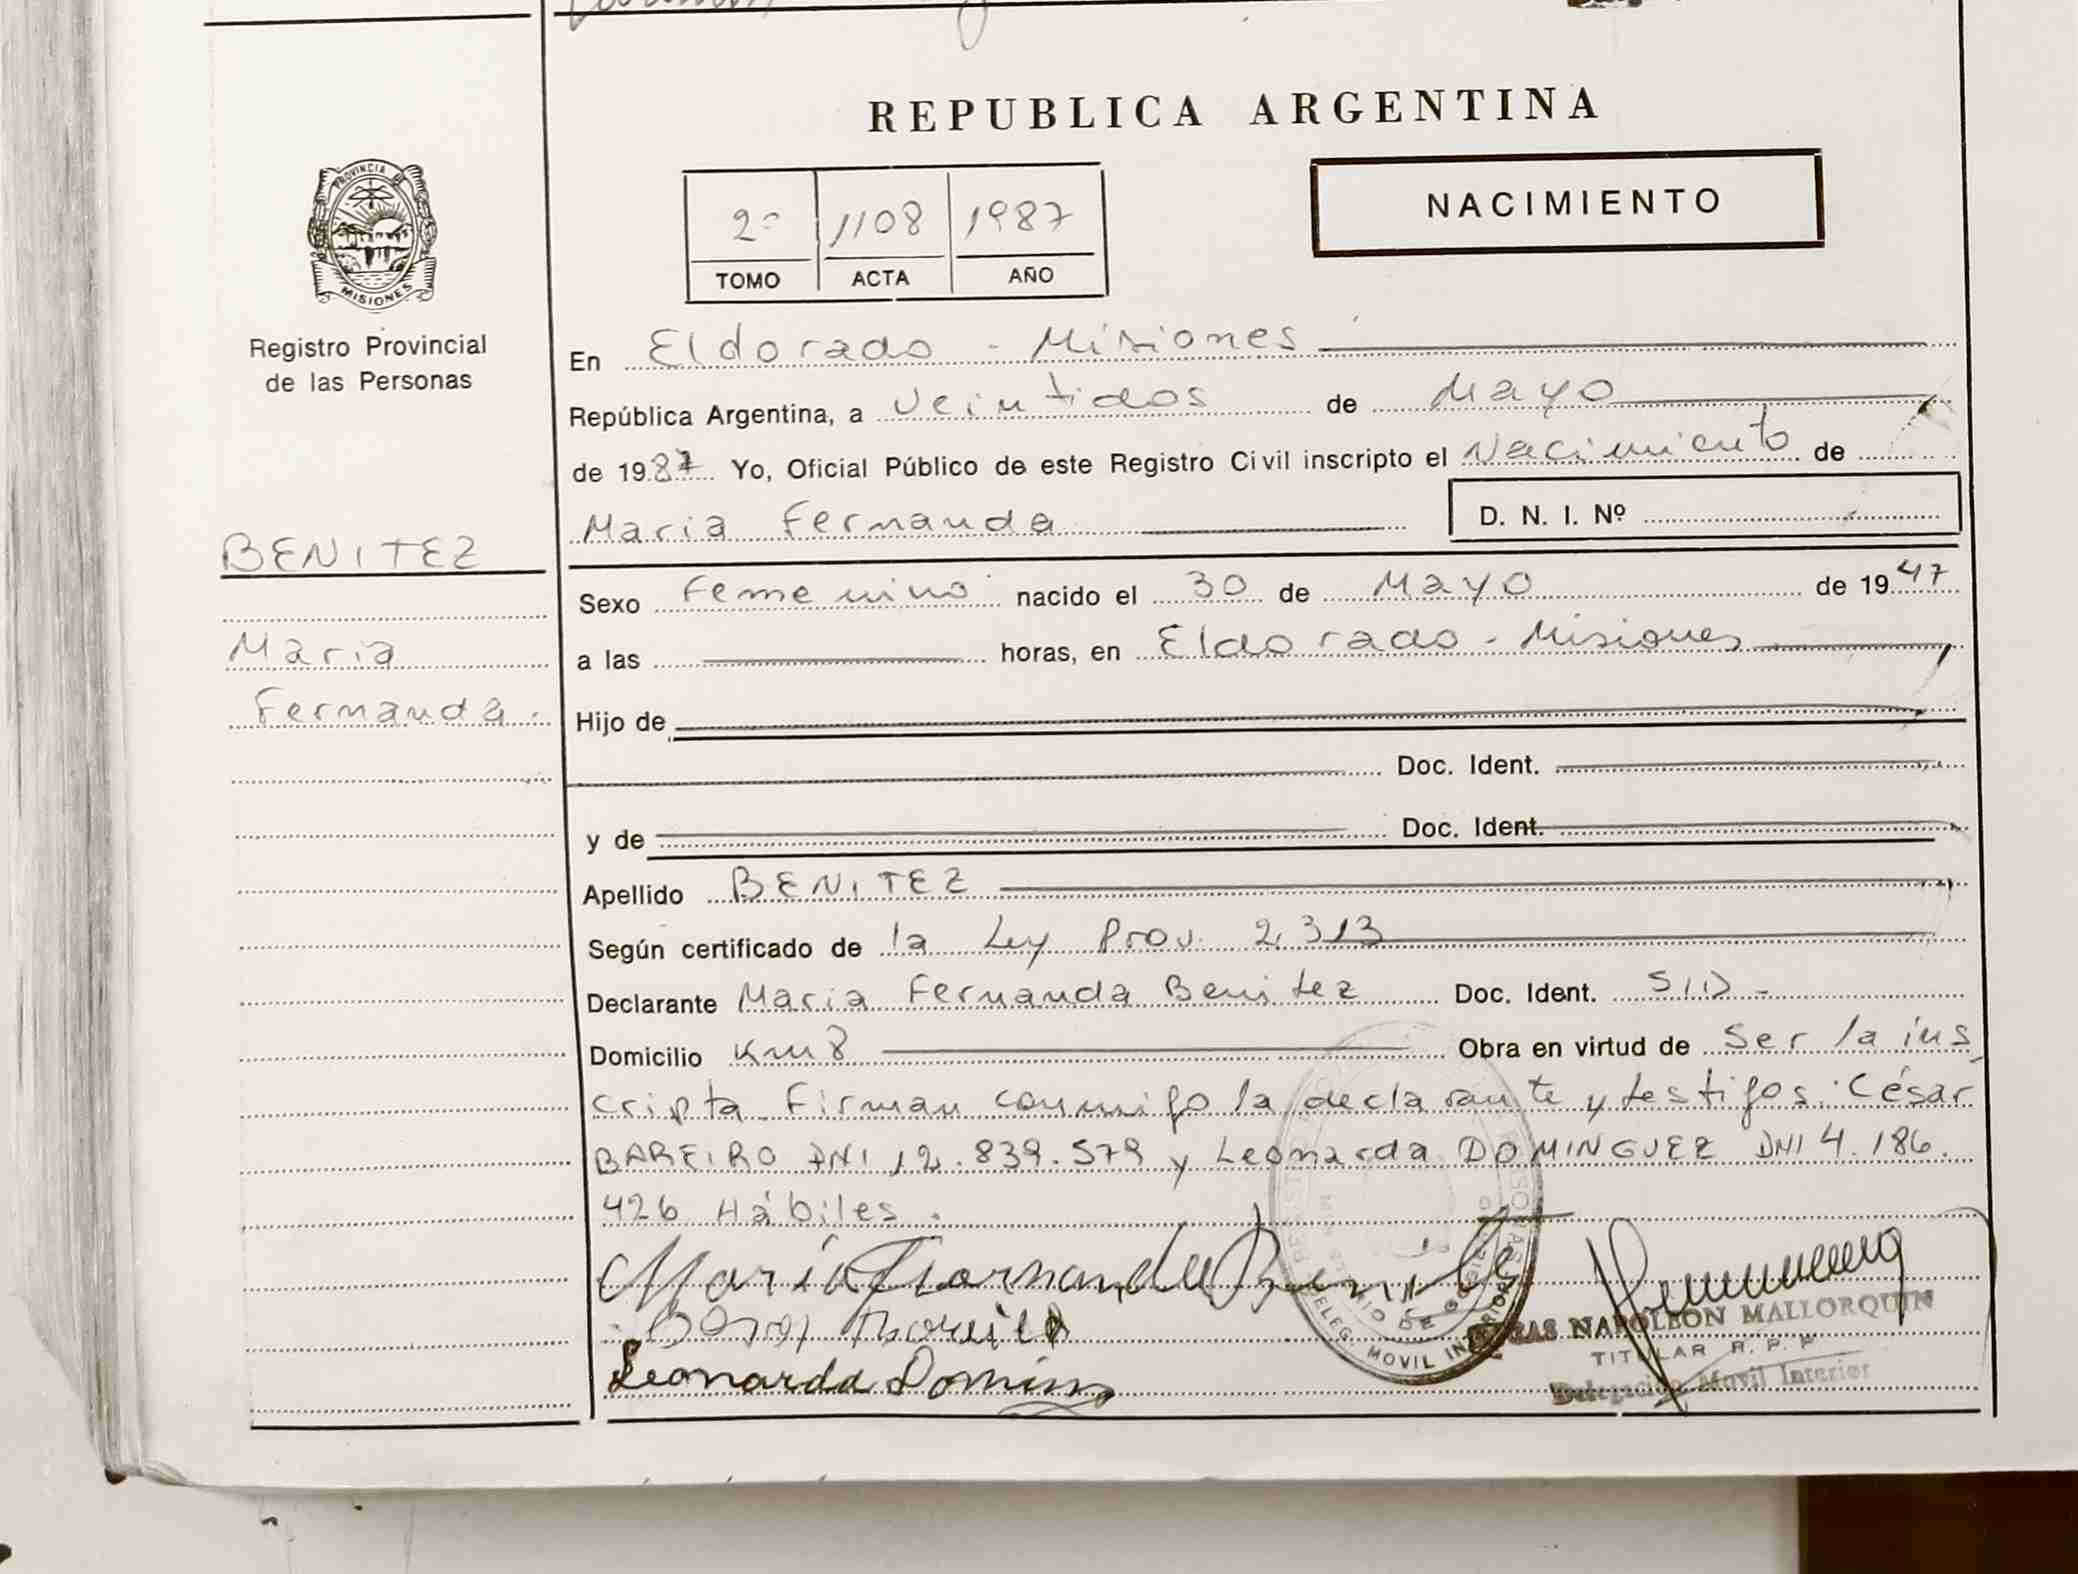 REPUBLICA ARGENTINA
PROVINCIA DE
MISIONES
Registro Provincial
de las Personas
2º 1108 1987
TOMO ACTA AÑO
NACIMIENTO
En Eldorado - Misiones
República Argentina, a Veintidos de Mayo
de 1987 Yo, Oficial Público de este Registro Civil inscripto el Nacimiento de
Maria Fernanda
D. N. I. Nº
BENITEZ
Maria
Fernanda.
Sexo Femenino nacido el 30 de Mayo de 1947
a las horas, en Eldorado - Misiones
Hijo de
Doc. Ident.
y de Doc. Ident.
Apellido BENITEZ
Según certificado de la Ley Prov. 2.313
Declarante Maria Fernanda Benitez Doc. Ident. S/D -
Domicilio Km 8 Obra en virtud de Ser la ins
cripta. Firman conmigo la declarante y testigos: César
BAREIRO DNI 12.839.579 y Leonarda DOMINGUEZ DNI 4.186.
426 Hábiles.
María Fernanda Benitez
Leonarda Domin
NAPOLEON MALLORQUIN
TITULAR R. P. P.
Delegación Movil Interior
DELEG. MOVIL INTERIOR